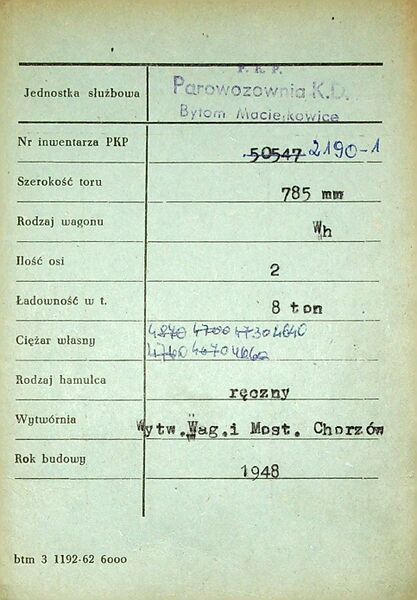 P. K. P.
Jednostka służbowa Parowozownia K.D.
Bytom Maciejkowice
Nr inwentarza PKP 50547 2190-1
Szerokość toru 785 mm
Rodzaj wagonu Wh
Ilość osi 2
Ładowność w t. 8 ton
Ciężar własny 4870 4700 4730 4640
4760 4670 4660
Rodzaj hamulca ręczny
Wytwórnia Wytw.Wag.i Most. Chorzów
Rok budowy 1948
btm 3 1192-62 6000